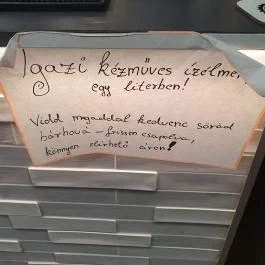 Igazi kézműves ízélmé
egy literben!
Vidd magaddal kedvenc söröd
bárhová - frissen csapolva,
könnyen elérhető áron!